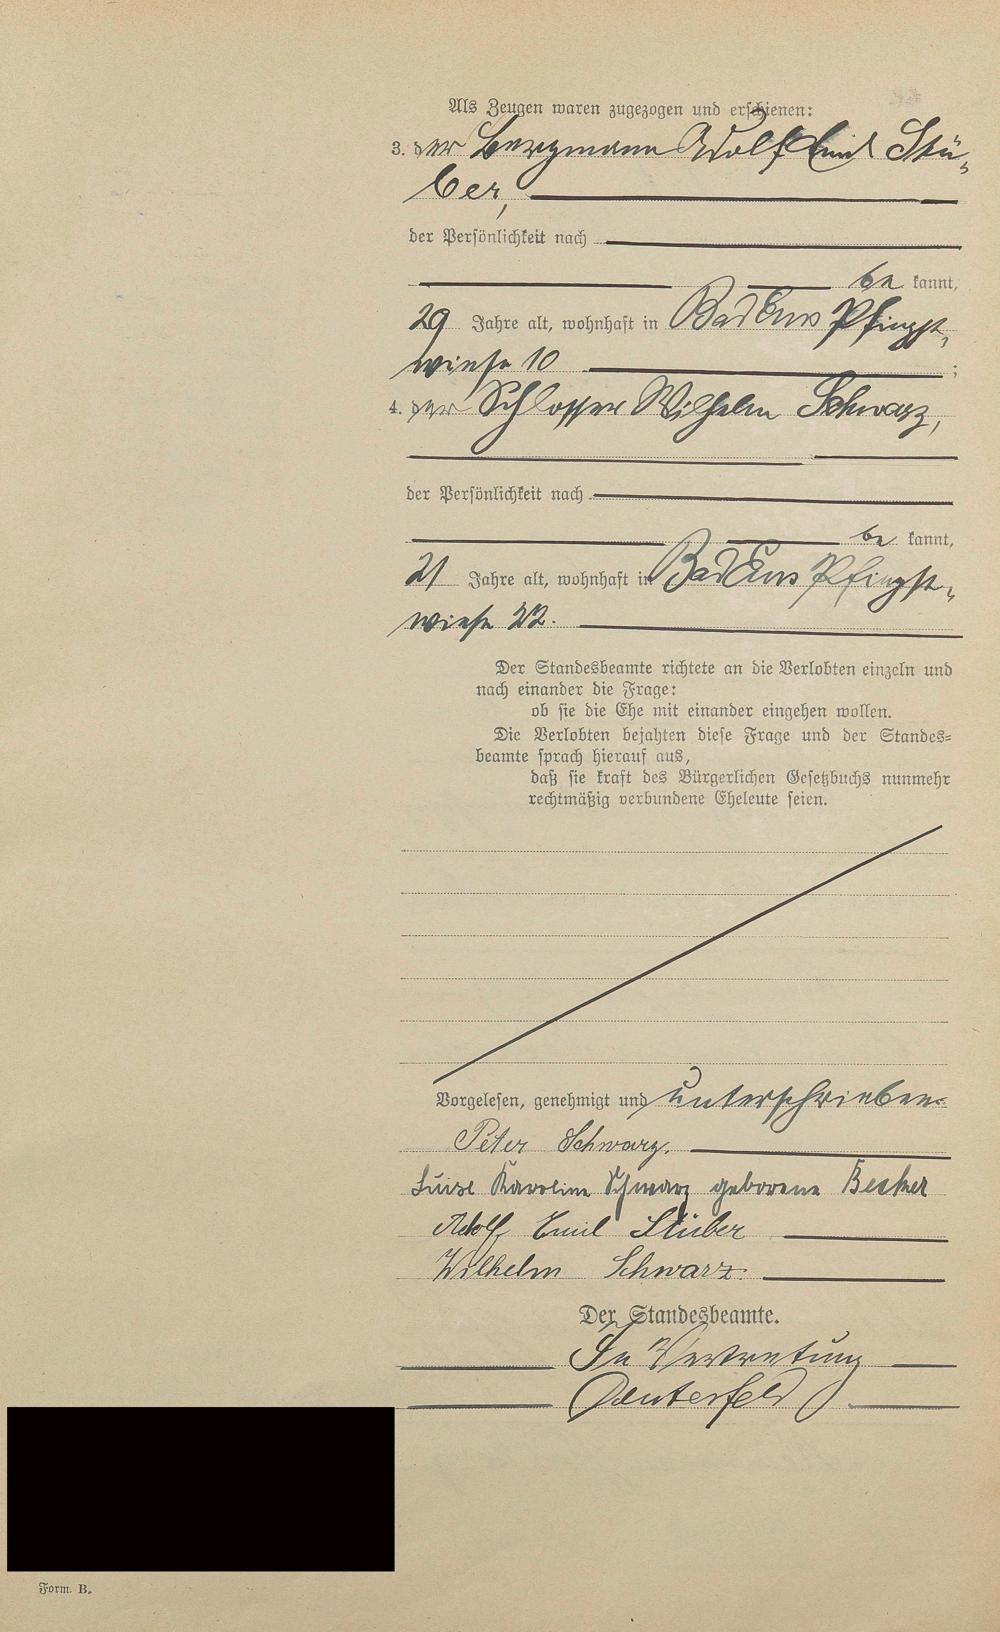 Als Zeugen waren zugezogen und erschienen:
3. der Bergmann Adolf Emil Stü-
ber,
der Persönlichkeit nach
be kannt,
29 Jahre alt, wohnhaft in Bad Ems Pfingst-
wiese 10 ;
4. der Schlosser Wilhelm Schwarz,
der Persönlichkeit nach
be kannt,
21 Jahre alt, wohnhaft in Bad Ems Pfingst-
wiese 22.
Der Standesbeamte richtete an die Verlobten einzeln und
nach einander die Frage:
ob sie die Ehe mit einander eingehen wollen.
Die Verlobten bejahten diese Frage und der Standes-
beamte sprach hierauf aus,
daß sie kraft des Bürgerlichen Gesetzbuchs nunmehr
rechtmäßig verbundene Eheleute seien.
Vorgelesen, genehmigt und unterschrieben
Peter Schwarz.
Luise Karoline Schwarz geborene Becker
Adolf Emil Stüber
Wilhelm Schwarz
Der Standesbeamte.
In Vertretung
Form. B.